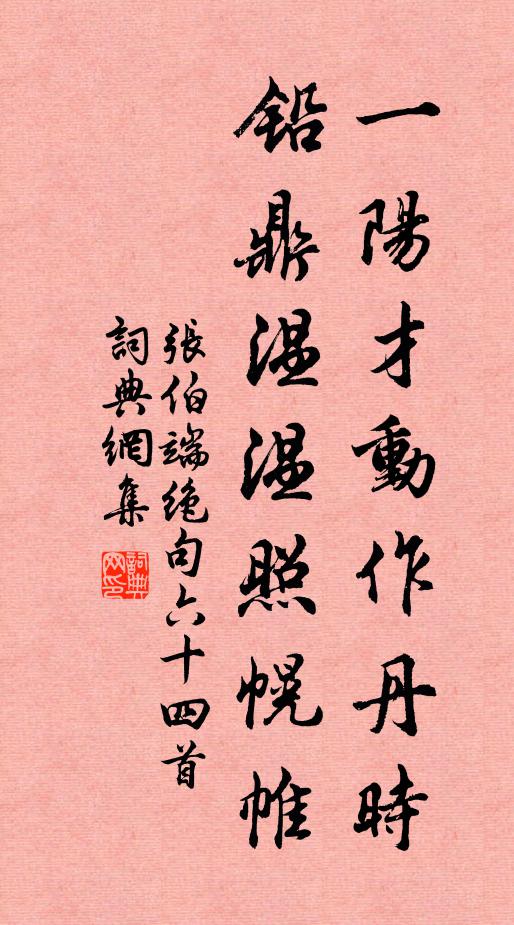 一陽才動作丹時
鉛鼎溫溫照幌帷
張伯端絕句六十四首
詞典網集
詞典網印